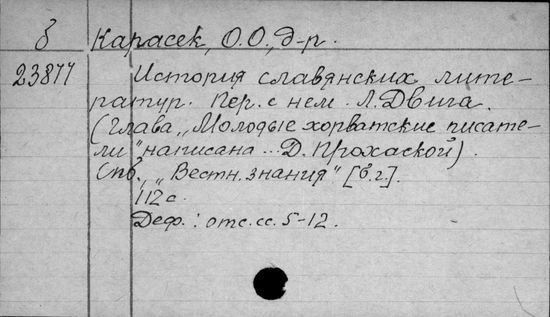 б Карасек, О.О., д-р.
23877 История славянских лите-
ратур. Пер. с нем. Л. Двига.
(Глава „Молодые хорватские писате-
ли" написана ... Д. Прохаской).
Спб., „Вестн. знания" [б.г.].
112 с.
Деф.: отс. сс. 5-12.